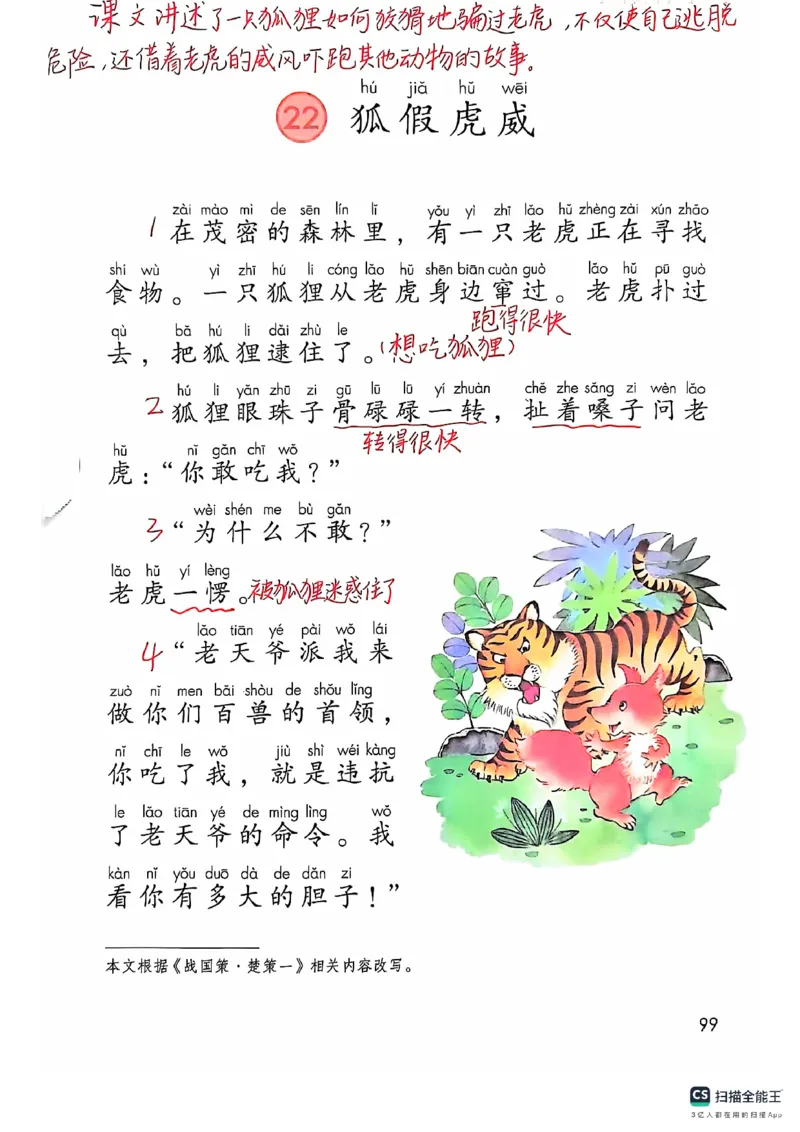 课文讲述了一只狐狸如何狡猾地骗过老虎,不仅使自己逃脱
危险,还借着老虎的威风吓跑其他动物的故事。
hú jiǎ hǔ wēi
22 狐假虎威
zài mào mì de sēn lín lǐ yǒu yì zhī lǎo hǔ zhèng zài xún zhǎo
1 在茂密的森林里，有一只老虎正在寻找
shí wù yì zhī hú li cóng lǎo hǔ shēn biān cuàn guò lǎo hǔ pū guò
食物。一只狐狸从老虎身边窜过。老虎扑过
跑得很快
qù bǎ hú li dǎi zhù le
去，把狐狸逮住了。(想吃狐狸)
hú li yǎn zhū zi gū lū lū yí zhuàn chě zhe sǎng zi wèn lǎo
2 狐狸眼珠子骨碌碌一转，扯着嗓子问老
转得很快
hǔ nǐ gǎn chī wǒ
虎：“你敢吃我？”
wèi shén me bù gǎn
3 “为什么不敢？”
lǎo hǔ yí lèng
老虎一愣。被狐狸迷惑住了
lǎo tiān yé pài wǒ lái
4 “老天爷派我来
zuò nǐ men bǎi shòu de shǒu lǐng
做你们百兽的首领，
nǐ chī le wǒ jiù shì wéi kàng
你吃了我，就是违抗
le lǎo tiān yé de mìng lìng wǒ
了老天爷的命令。我
kàn nǐ yǒu duō dà de dǎn zi
看你有多大的胆子！”
本文根据《战国策·楚策一》相关内容改写。
99
CS 扫描全能王
3亿人都在用的扫描App